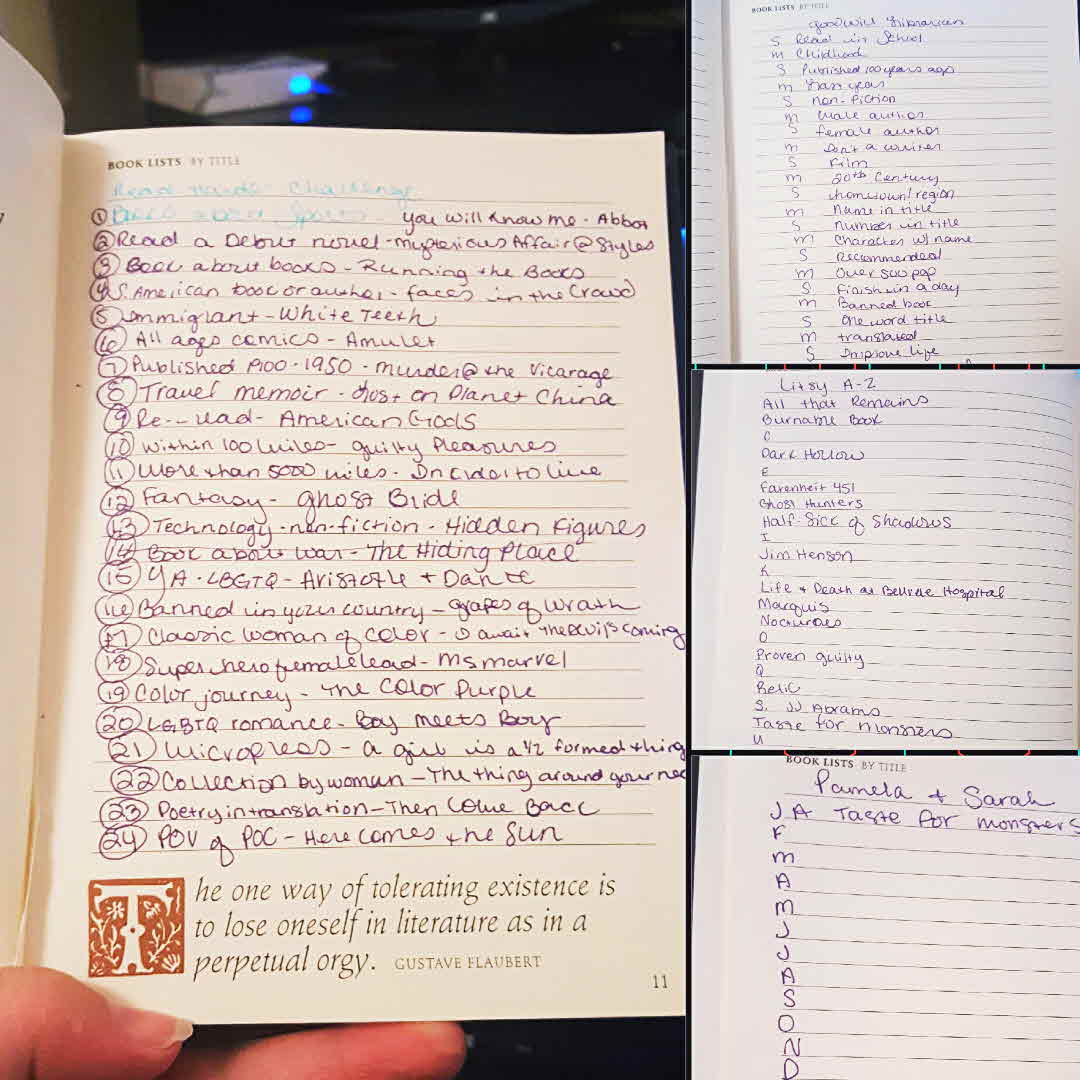 BOOK LISTS BY TITLE
Read Harder Challenge
① Book about Sports - You will know me - Abbot
② Read a Debut novel - Mysterious Affair @ Styles
③ Book about books - Running the Books
④ S. American book or author - faces in the Crowd
⑤ Immigrant - White Teeth
⑥ All ages comics - Amulet
⑦ Published 1900-1950 - Murder @ the Vicarage
⑧ Travel memoir - Lost on Planet China
⑨ Re-read - American Gods
⑩ Within 100 miles - guilty Pleasures
⑪ More than 5000 miles - In Order to live
⑫ Fantasy - ghost Bride
⑬ Technology - non-fiction - Hidden Figures
⑭ Book about war - The Hiding Place
⑮ YA - LBGTQ - Aristotle + Dante
⑯ Banned in your country - grapes of wrath
⑰ Classic woman of color - I await the devil's coming
⑱ Superhero female lead - Ms marvel
⑲ Color journey - The Color Purple
⑳ LGBTQ romance - Boy meets Boy
㉑ Micropress - a girl is a 1/2 formed thing
㉒ Collection by woman - The thing around your nec
㉓ Poetry in translation - Then Come Back
㉔ POV of POC - Here comes the Sun
The one way of tolerating existence is
to lose oneself in literature as in a
perpetual orgy. GUSTAVE FLAUBERT
11
BOOK LISTS BY TITLE
goodwill librarian
S Read in School
m Childhood
S Published 100 years ago
m this year
S non-fiction
m Male author
S female author
m Isn't a writer
S Film
m 20th Century
S hometown/region
m Name in title
S number in title
m Character w/ name
S Recommended
m Over 500 pgp
S Finish in a day
m Banned book
S One word title
m translated
S Improve life
Litsy A-Z
All that Remains
Burnable Book
C
Dark Hollow
E
Farenheit 451
Ghost Hunters
Half-Sick of Shadows
I
Jim Henson
K
Life + Death at Bellevue Hospital
Marquis
Nocturnes
O
Proven guilty
Q
Relic
S. JJ Abrams
Taste for monsters
U
BOOK LISTS BY TITLE
Pamela + Sarah
J A Taste for monsters
F
m
A
m
J
J
A
S
O
N
D